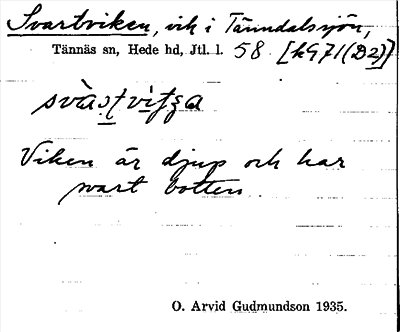 Svartviken, vik i Tänndalssjön,
Tännäs sn, Hede hd, Jtl. l. 58 [kG71(D2)]
Viken är djup och har
svart botten.
O. Arvid Gudmundson 1935.